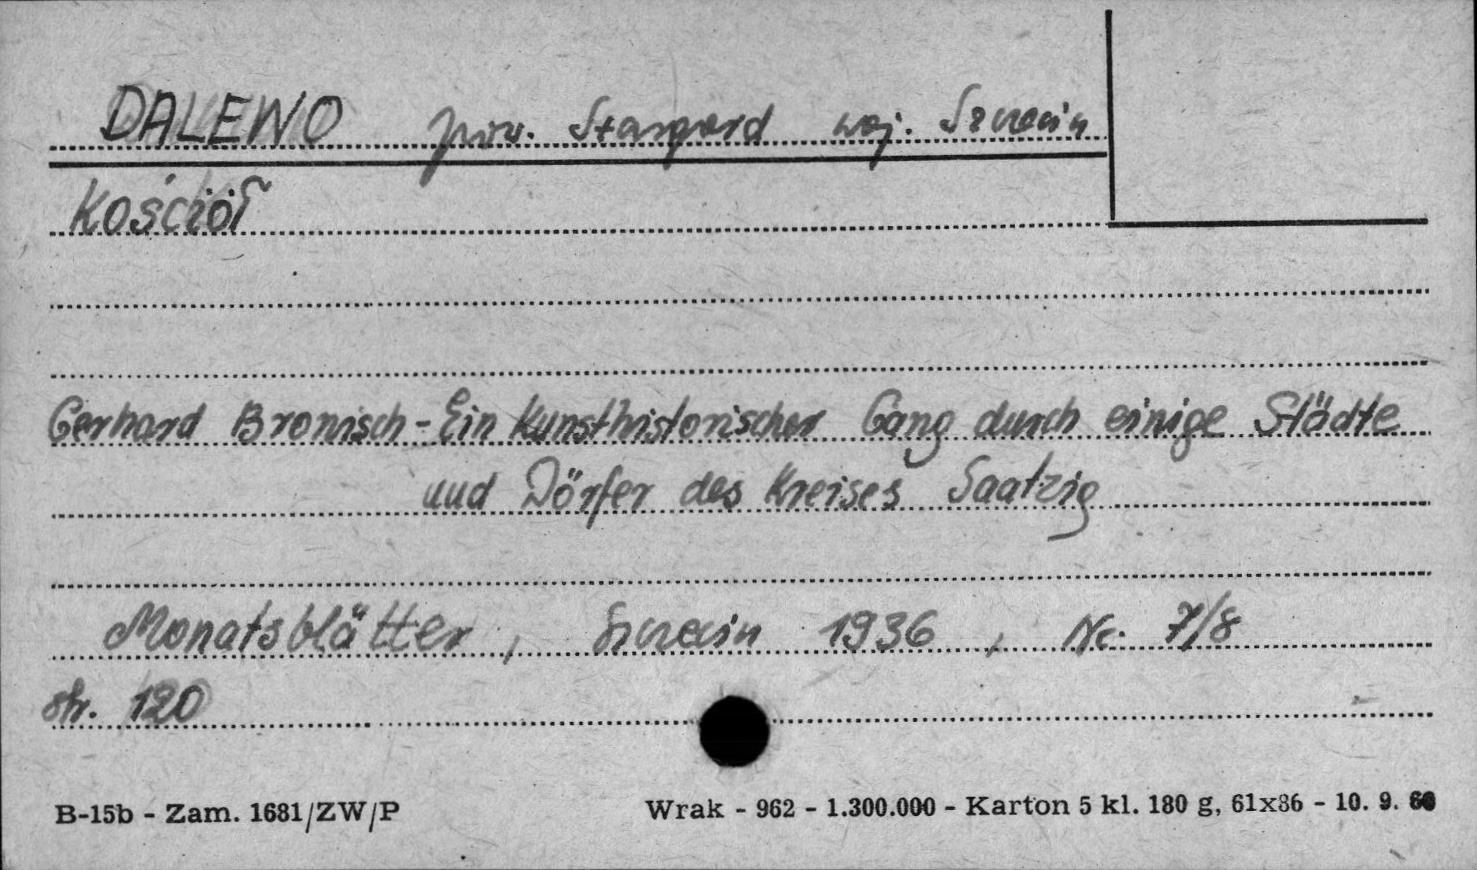 DALEWO pow. Stargard woj. Szczecin
Kościół
Gerhard Bronisch - Ein Kunsthistorischer Gang durch einige Städte
und Dörfer des Kreises Saatzig
Monatsblätter, Szczecin 1936, Nr. 7/8
str. 120
B-15b - Zam. 1681/ZW/P
Wrak - 962 - 1.300.000 - Karton 5 kl. 180 g, 61x86 - 10. 9.